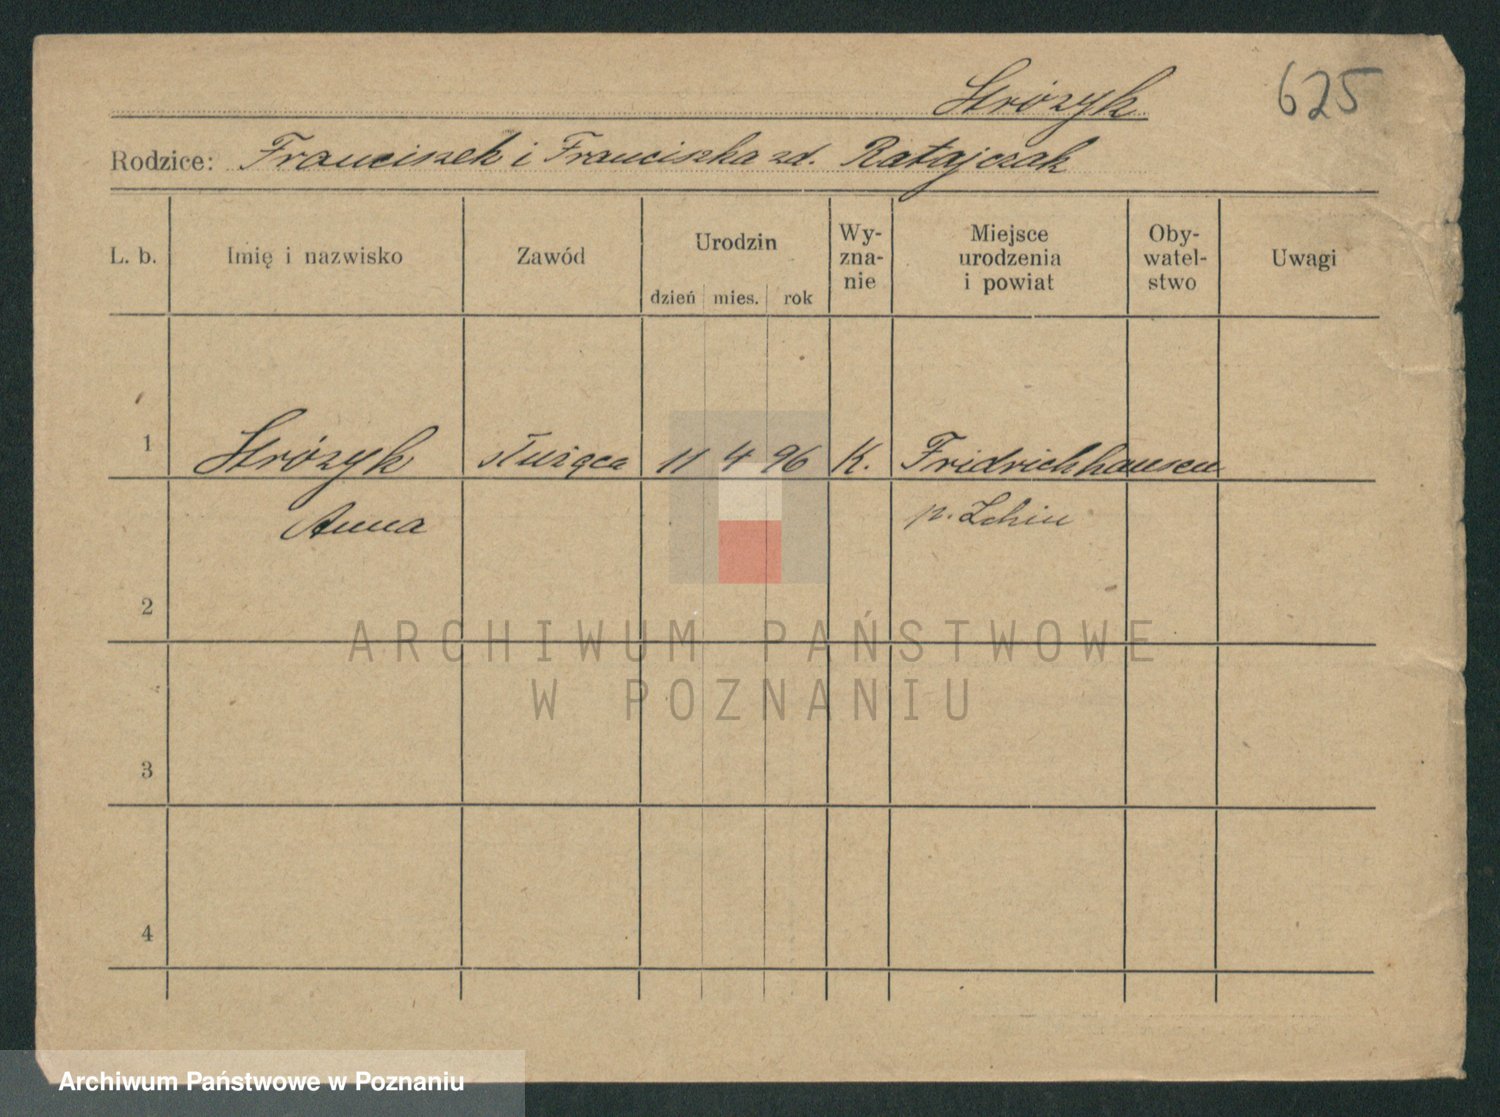 Stróżyk
625
Rodzice: Franciszek i Franciszka zd. Ratajczak
L. b.
Imię i nazwisko
Zawód
Urodzin
dzień mies. rok
Wy-
zna-
nie
Miejsce
urodzenia
i powiat
Oby-
watel-
stwo
Uwagi
1 Stróżyk służąca 11 4 96 K. Fridrichhausen
Anna p.
2
3
4
ARCHIWUM PAŃSTWOWE
W POZNANIU
Archiwum Państwowe w Poznaniu